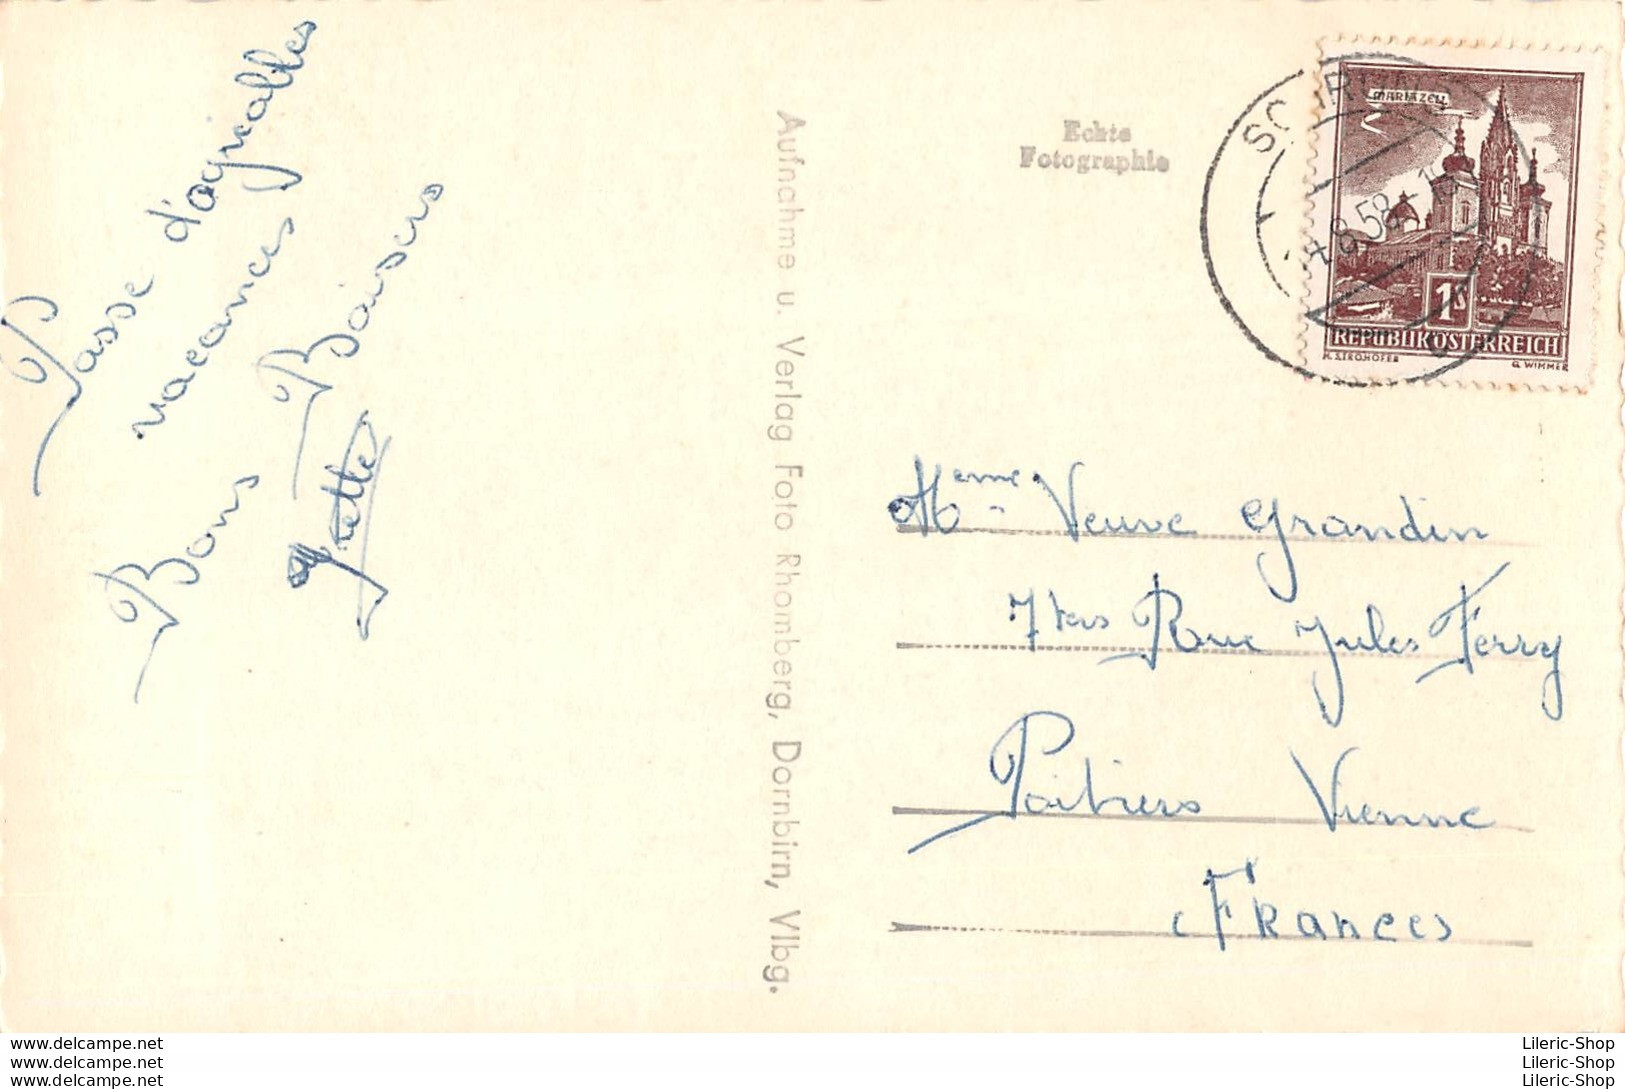 Passe d'agréables
vacances
Bons Baisers
Aufnahme u. Verlag Foto Rhomberg, Dornbirn, Vlbg.
Echte
Fotographie
MARIAZELL
1S
REPUBLIK ÖSTERREICH
G. WIMMER
8.58
Meme Veuve Grandin
7 ters Rue Jules Ferry
Poitiers Vienne
Frances
www.delcampe.net
www.delcampe.net
www.delcampe.net
Lileric-Shop
Lileric-Shop
Lileric-Shop